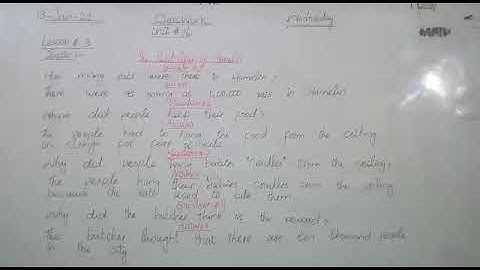 Classwork
Wednesday
Unit # 16
MATH
Lesson # 3
How many rats were there in Hamelin?
Answer
There were as many as rats in Hamelin
Question 2
Where did people their food?
Answer
The people had to hang the food from the ceiling
in slings for fear of rats
Question 3
Why did people hang babies "cradles" from the ceiling?
Answer
The people hang their babies cradles from the ceiling
because the rats used to bite them.
Question 4
Why did the butcher think of the reward?
Answer
The butcher thought that there are ten thousand people
in the city